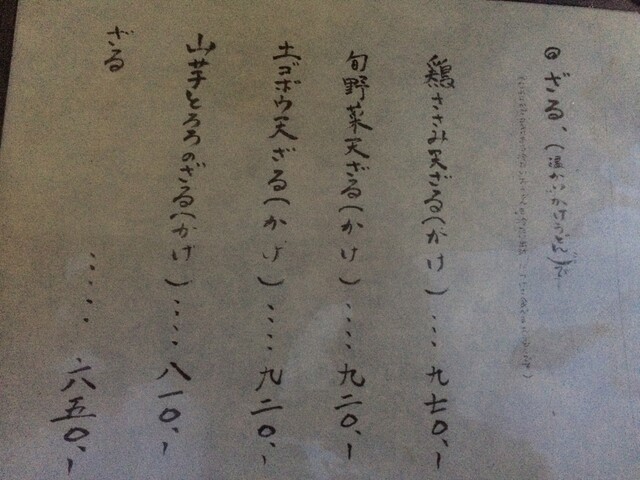 ◎ざる、(温かいかけうどん)です
鶏ささみ天ざる(かけ)‥‥九七0.-
旬野菜天ざる(かけ)‥‥九二0.-
ゴボウ天ざる(かけ)‥‥九二0.-
山芋とろろのざる(かけ)‥‥八一0.-
ざる‥‥‥六五0.-